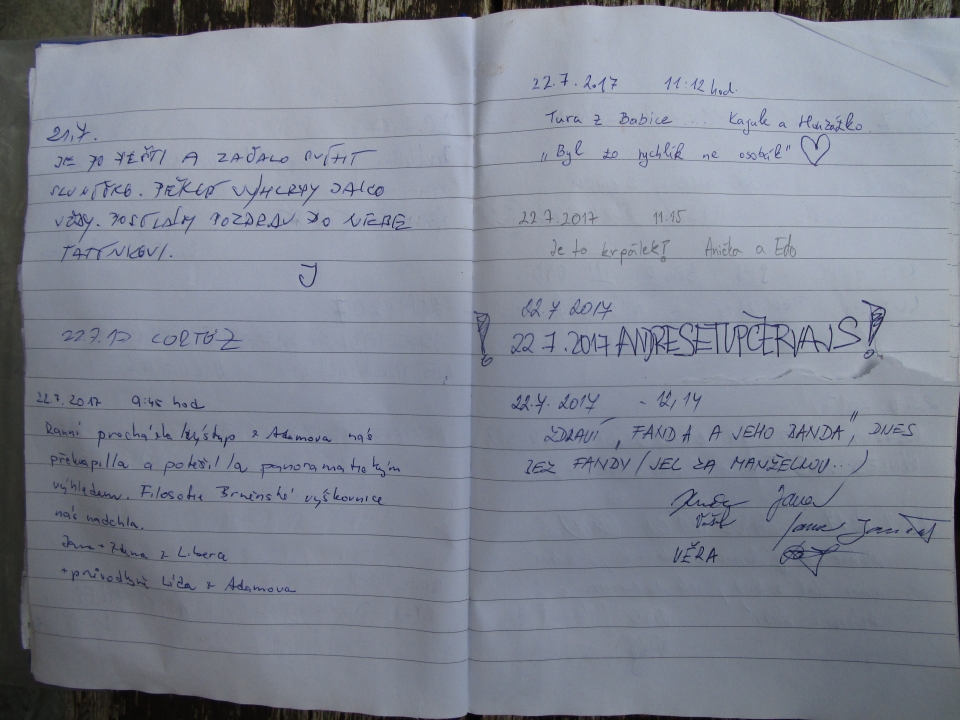 21.7.
JE PO DEŠTI A ZAČALO SVÍTIT
SLUNÍČKO. PĚKNÉ VÝHLEDY JAKO
VŽDY. POSÍLÁM POZDRAV DO NEBE
TATÍNKOVI.
J
22.7.17 CORTÉZ
22.7.2017 9:45 hod
Ranní procházka/výstup z Adamova nás
překvapilla a potěšil/la panoramatickým
výhledem. Filosofie Brněnské vyškovnice
nás nadchla.
Jana + z Libera
+ průvodkyně Líďa z Adamova
22.7.2017 11:12 hod.
Tura z Babice ... a
„Byl to rychlík ne osobák" ♡
22.7.2017 11.15
Je to krpálek! Anička a Edo
22.7 2017
! 22.7.2017 !
22.7.2017 - 12,14
ZDRAVÍ „FANDA A JEHO BANDA", DNES
BEZ FANDY (JEL ZA MANŽELKOU..)
Jana
Jana
VĚRA